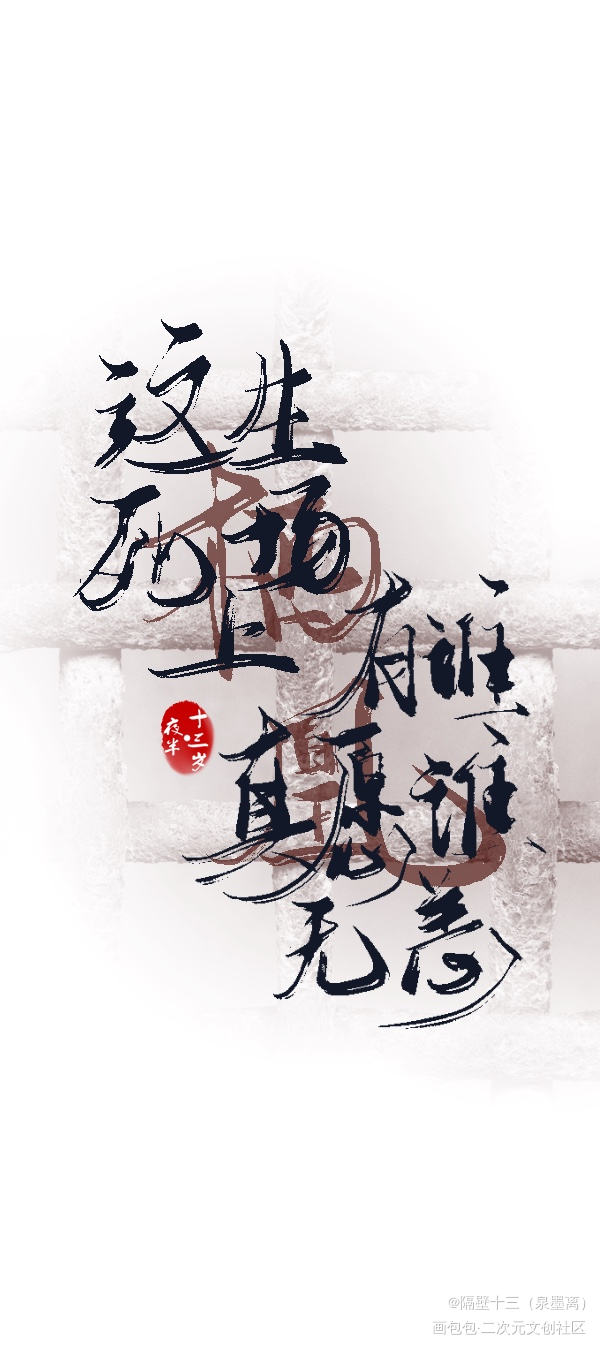 这生
死场
上
有谁
真愿谁
无恙
十三岁
夜半
@隔壁十三（泉墨离）
画包包·二次元文创社区